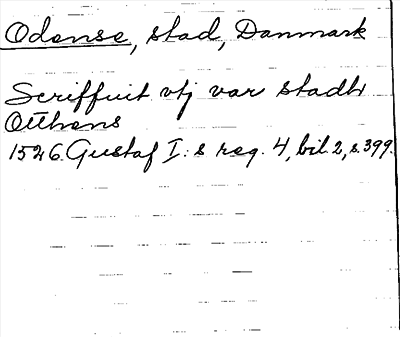 Odense, stad, Danmark
Scriffuit vtj var stadh
Otthens
1526. Gustaf I:s reg. 4, bil. 2, s. 399.